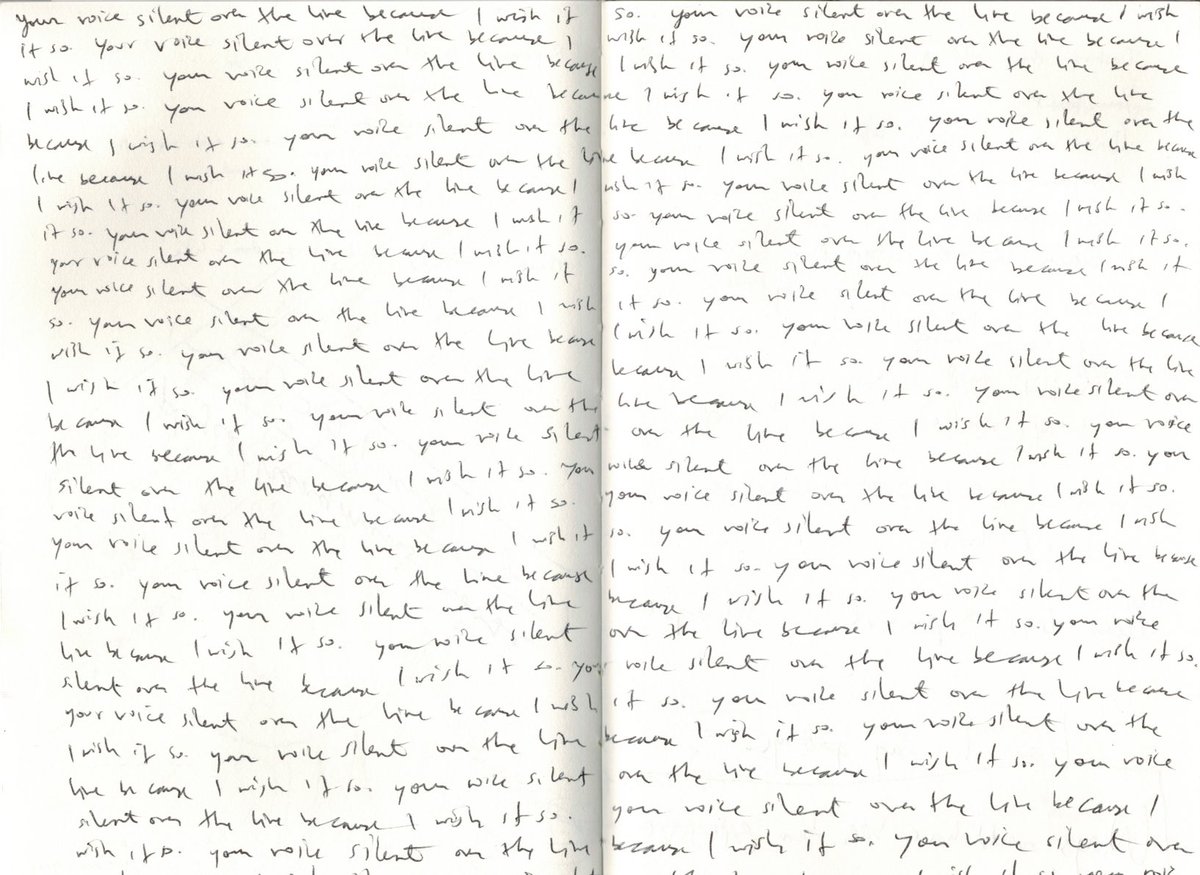 your voice silent over the line because I wish it
it so. your voice silent over the line because I
wish it so. your voice silent over the line because
I wish it so. your voice silent over the line because
because I wish it so. your voice silent over the
line because I wish it so. your voice silent over the line
I wish it so. your voice silent over the line because I
it so. your voice silent over the line because I wish it
your voice silent over the line because I wish it so.
your voice silent over the line because I wish it
so. your voice silent over the line because I wish
wish it so. your voice silent over the line because
I wish it so. your voice silent over the line
because I wish it so. your voice silent over the
the line because I wish it so. your voice silent
silent over the line because I wish it so. your
voice silent over the line because I wish it so.
your voice silent over the line because I wish it
it so. your voice silent over the line because
I wish it so. your voice silent over the line
line because I wish it so. your voice silent
silent over the line because I wish it so. your
your voice silent over the line because I wish
I wish it so. your voice silent over the line
line because I wish it so. your voice silent
silent over the line because I wish it so.
wish it so. your voice silent over the line
so. your voice silent over the line because I wish
wish it so. your voice silent over the line because I
I wish it so. your voice silent over the line because
I wish it so. your voice silent over the line
line because I wish it so. your voice silent over the
because I wish it so. your voice silent over the line because
wish it so. your voice silent over the line because I wish
so. your voice silent over the line because I wish it so.
your voice silent over the line because I wish it so.
so. your voice silent over the line because I wish it
it so. your voice silent over the line because I
I wish it so. your voice silent over the line because
because I wish it so. your voice silent over the line
line because I wish it so. your voice silent over
over the line because I wish it so. your voice
voice silent over the line because I wish it so. your
your voice silent over the line because I wish it so.
so. your voice silent over the line because I wish
I wish it so. your voice silent over the line because
because I wish it so. your voice silent over the
over the line because I wish it so. your voice
voice silent over the line because I wish it so.
it so. your voice silent over the line because
because I wish it so. your voice silent over the
over the line because I wish it so. your voice
your voice silent over the line because I
because I wish it so. your voice silent over